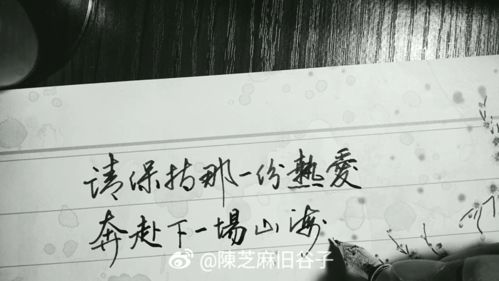 请保持那一份熱愛
奔赴下一場山海
@陳芝麻旧谷子